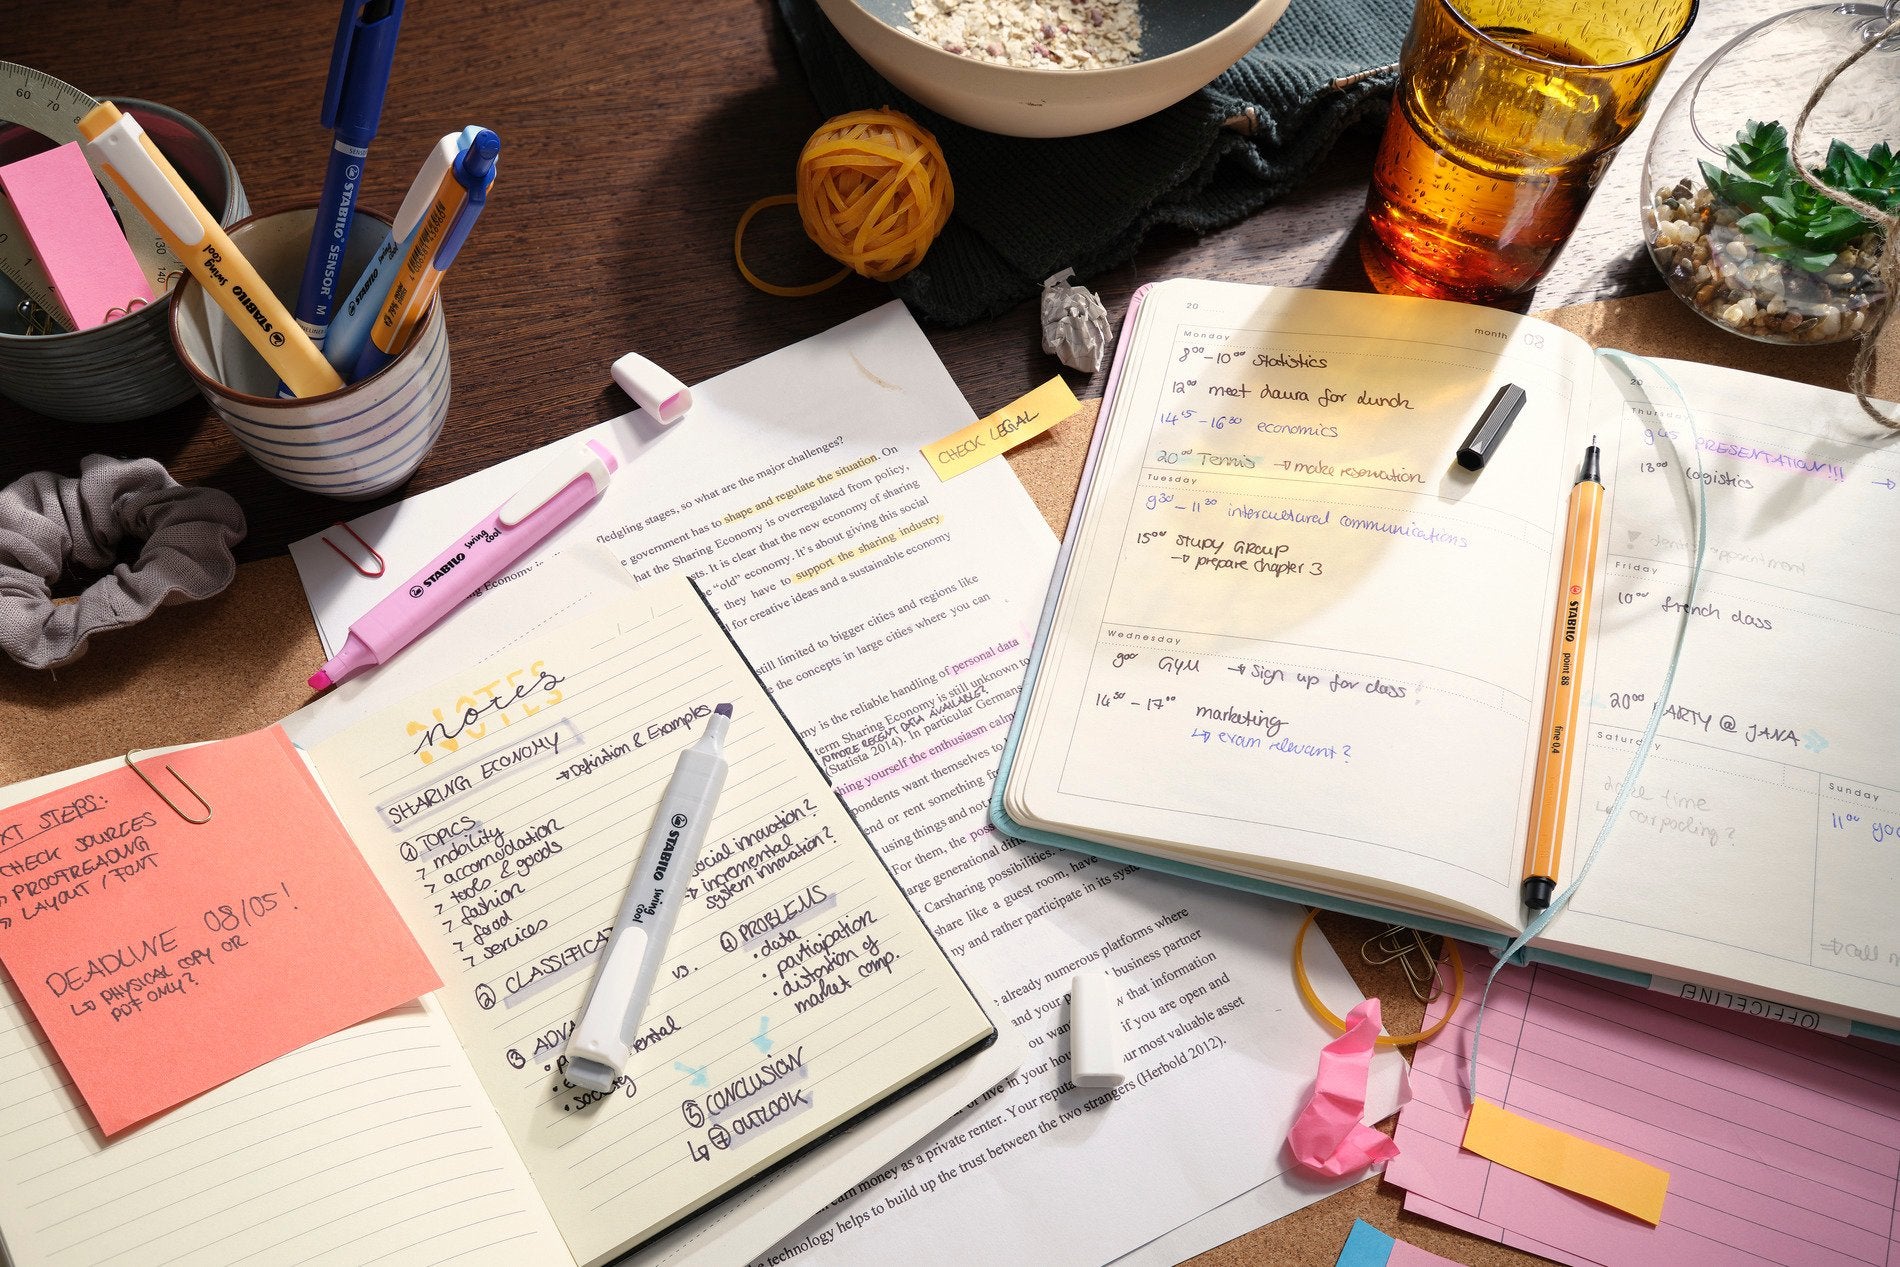 STABILO swing cool
STABILO SENSOR M
STABILO swing cool
STABILO swing cool
NOTES
notes
SHARING ECONOMY
→ Definition & Examples
① TOPICS
> mobility
> accomodation
> tools & goods
> fashion
> food
> services
② CLASSIFICAT
social innovation?
→ incremental
system innovation?
vs.
③ ADVA
ental
society
④ PROBLEMS
• data
• participation
• distortion of
market comp.
⑤ CONCLUSION
↳ ⑦ OUTLOOK
STABILO swing cool
XT STEPS:
CHECK SOURCES
» PROOFREADING
» LAYOUT / FONT
DEADLINE 08/05!
↳ PHYSICAL COPY OR
PDF ONLY?
CHECK LEGAL
fledgling stages, so what are the major challenges?
e government has to shape and regulate the situation. On
hat the Sharing Economy is overregulated from policy,
sts. It is clear that the new economy of sharing
e "old" economy. It's about giving this social
they have to support the sharing industry
l for creative ideas and a sustainable economy
still limited to bigger cities and regions like
e the concepts in large cities where you can
my is the reliable handling of personal data
term Sharing Economy is still unknown to
MORE RECENT DATA AVAILABLE?
(Statista 2014). In particular Germans
hing yourself the enthusiasm calms
pondents want themselves to
end or rent something
using things and not
For them, the pos
large generational diff
Carsharing possibilities.
share like a guest room, have
ny and rather participate in its sys
already numerous platforms where
and your business partner
ou wan w that information
or live in your hou if you are open and
earn money as a private renter. Your reputa ur most valuable asset
e technology helps to build up the trust between the two strangers (Herbold 2012).
20
month 08
Monday
8⁰⁰ – 10⁰⁰ statistics
12⁰⁰ meet Laura for lunch
14¹⁵ – 16³⁰ economics
20⁰⁰ Tennis → make reservation
Tuesday
9³⁰ – 11³⁰ intercultural communications
15⁰⁰ STUDY GROUP
→ prepare chapter 3
Wednesday
9⁰⁰ GYM → sign up for class
14³⁰ – 17⁰⁰ marketing
↳ exam relevant?
STABILO point 88 fine 0,4
20
Thursday
9⁴⁵ PRESENTATION!!!
13⁰⁰ Logistics
Friday
10⁰⁰ french class
20⁰⁰ PARTY @ JANA
Saturday
time
↳ carpooling?
Sunday
11⁰⁰
(OFFICELINE)